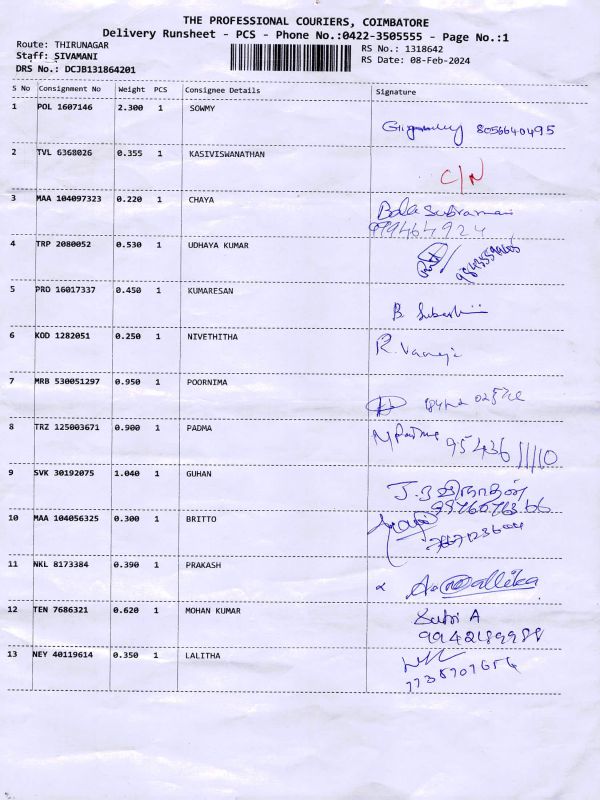 THE PROFESSIONAL COURIERS, COIMBATORE
Delivery Runsheet - PCS - Phone No.:0422-3505555 - Page No.:1
Route: THIRUNAGAR RS No.: 1318642
Staff: SIVAMANI RS Date: 08-Feb-2024
DRS No.: DCJB131864201
S No Consignment No Weight PCS Consignee Details Signature
1 POL 1607146 2.300 1 SOWMY
8056640495
2 TVL 6368026 0.355 1 KASIVISWANATHAN
C/N
3 MAA 104097323 0.220 1 CHAYA
Bala Subramani
999464924
4 TRP 2080052 0.530 1 UDHAYA KUMAR
5 PRO 16017337 0.450 1 KUMARESAN
B.
6 KOD 1282051 0.250 1 NIVETHITHA
R.
7 MRB 530051297 0.950 1 POORNIMA
8 TRZ 125003671 0.900 1 PADMA
9543611110
9 SVK 30192075 1.040 1 GUHAN
10 MAA 104056325 0.300 1 BRITTO
11 NKL 8173384 0.390 1 PRAKASH
12 TEN 7686321 0.620 1 MOHAN KUMAR
9942189988
13 NEY 40119614 0.350 1 LALITHA